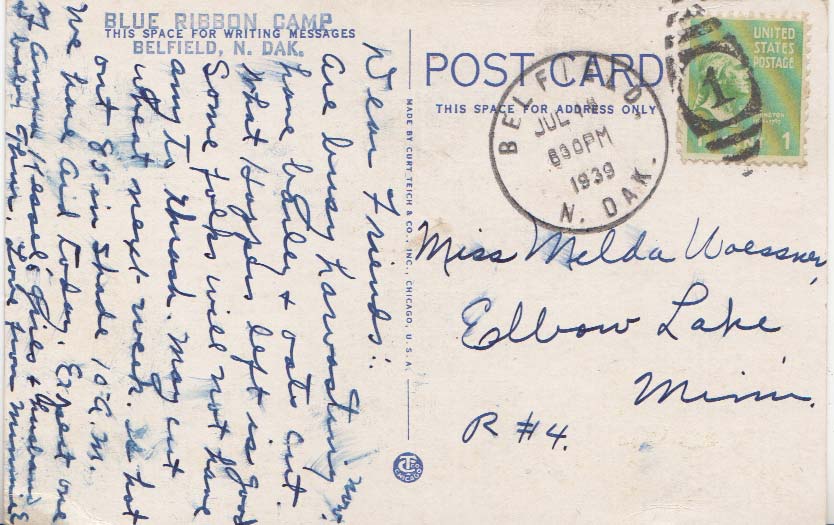 BLUE RIBBON CAMP
THIS SPACE FOR WRITING MESSAGES
BELFIELD, N. DAK.
Dear Friends:.
are busy harvesting now.
have barley & oats cut.
What Hoppers left is good
Some folks will not have
any to thrash. May cut
wheat next week. Is hot
out 85 in shade 10 A.M.
We have Aid today. Expect one
of Anna girls & husband
Love from Minnie
MADE BY CURT TEICH & CO., INC., CHICAGO, U.S.A.
POST CARD
THIS SPACE FOR ADDRESS ONLY
BELFIELD,
JUL
630PM
1939
N. DAK.
1
UNITED
STATES
POSTAGE
1
Miss Melda Woessner,
Elbow Lake
Minn.
R #4.
CHICAGO